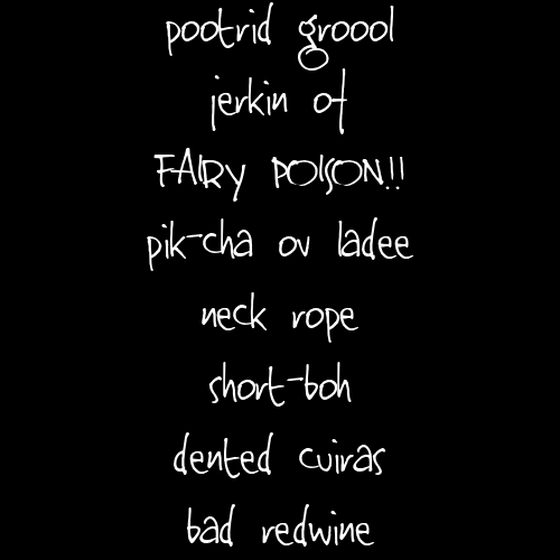 pootrid groool
jerkin of
FAIRY POISON!!
pik-cha ov ladee
neck rope
short-boh
dented cuiras
bad redwine